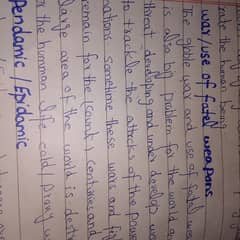 the human being
war use of fatel weapons
The globle war and use of fatel
is also big problem for the world
threat developing and under develop
to trackle the attacks of the
nations sometime these wars and
remain for the centuries and
large area of the world is
for the humman life cold/proxy
Pendamic / Epidamic